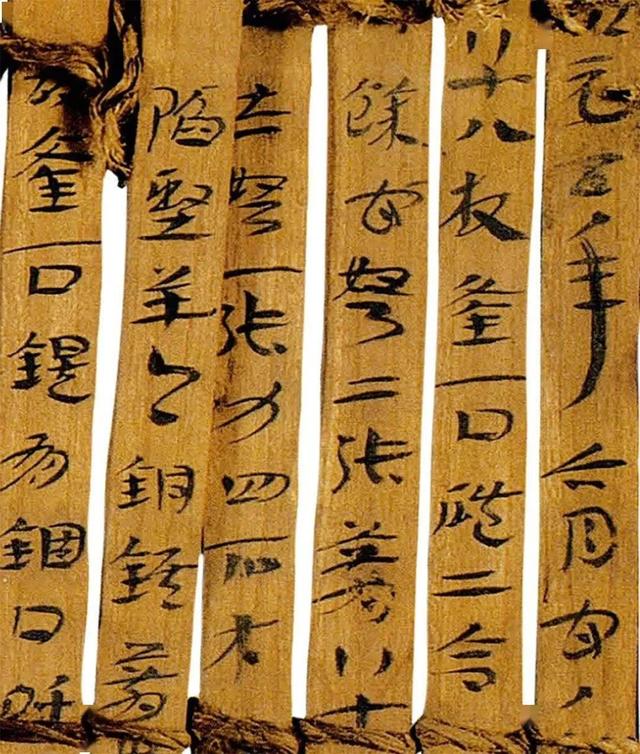 元五年六月官
八十八枚釜一口磑二合
餘官弩二張箭八十
赤弩一張力四石木
陷堅羊頭銅鍭箭
釜一口鍉有錮口呼